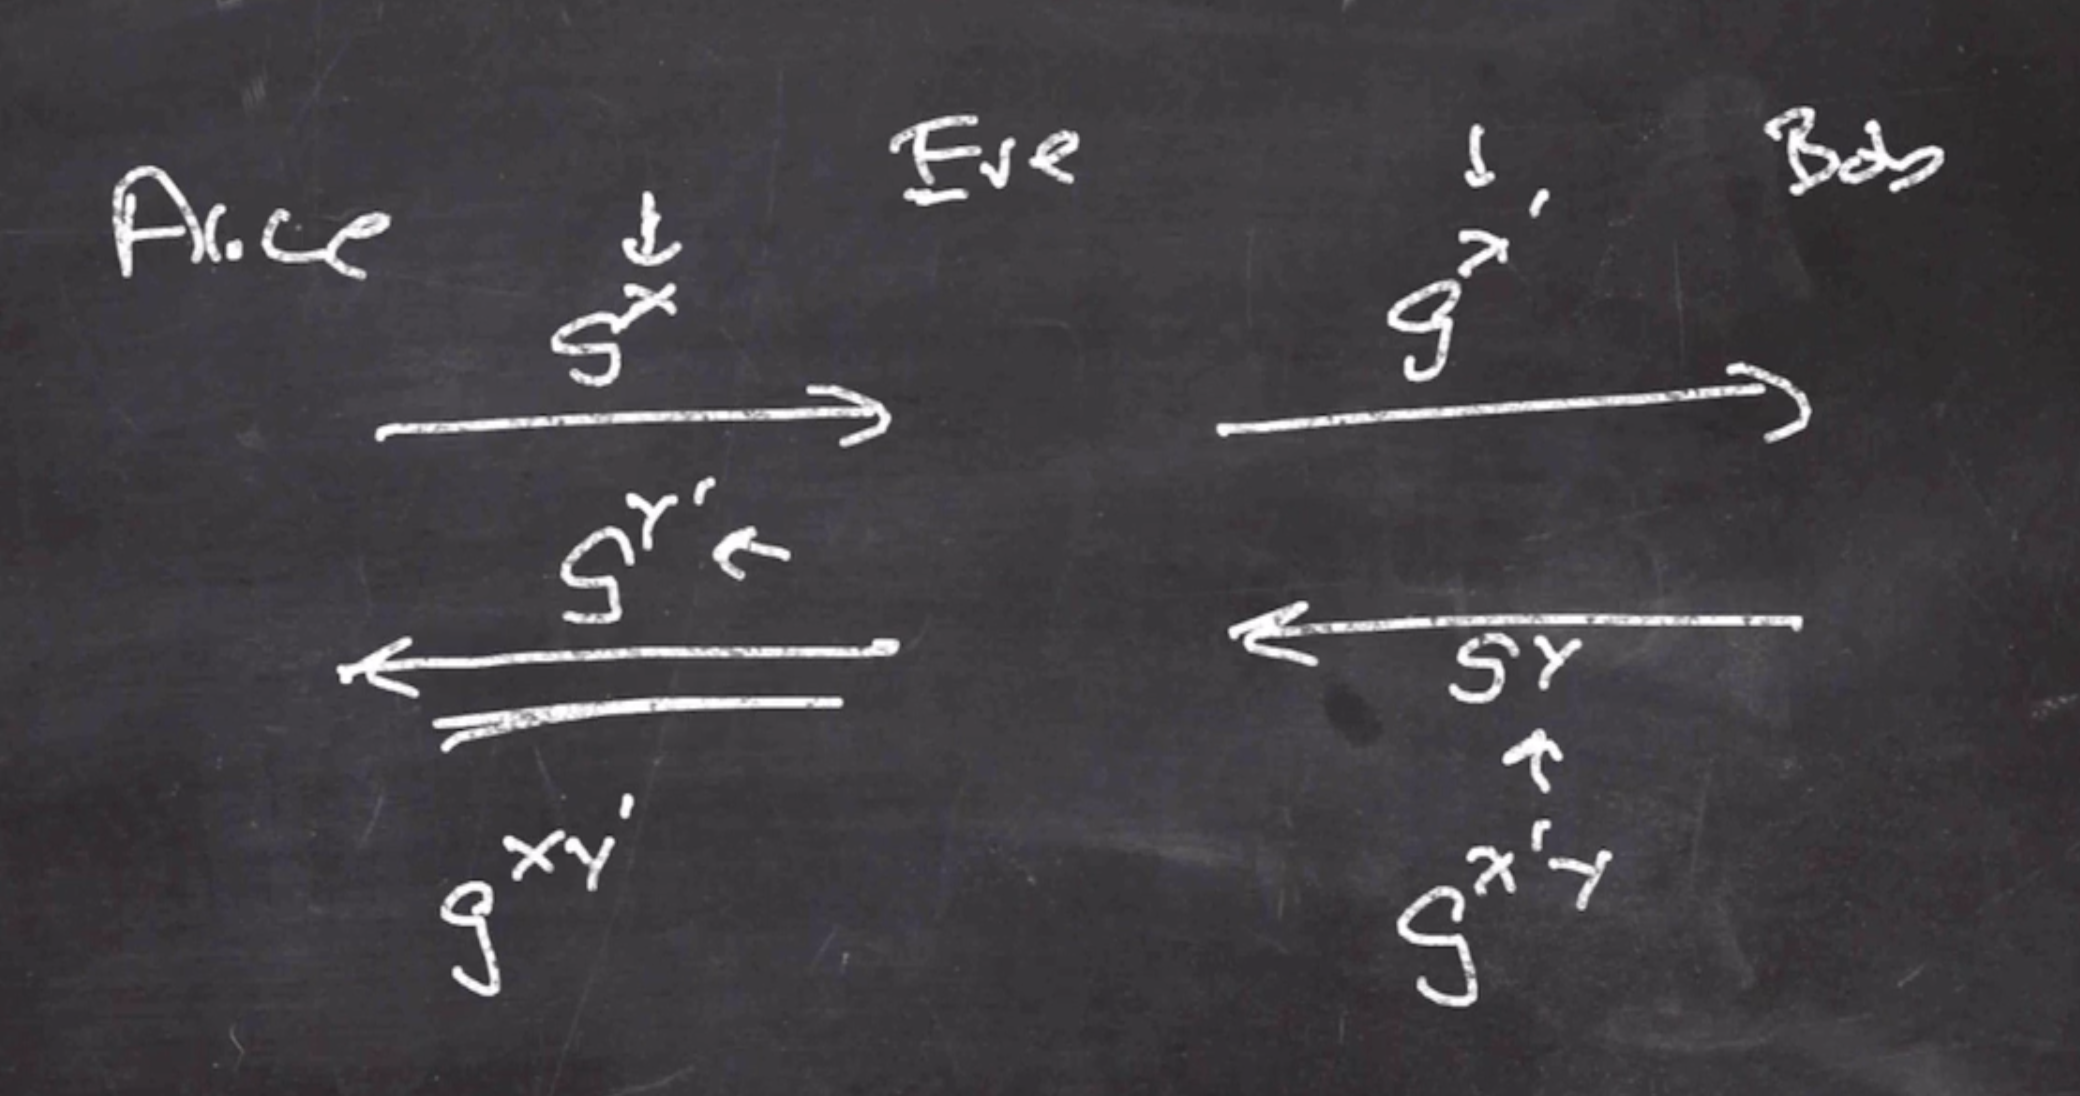 Alice Eve Bob
g^x g^x'
g^y'
g^y
g^xy' g^x'y